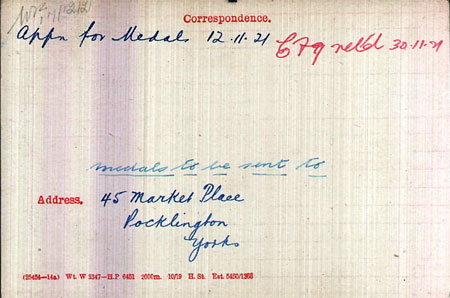 Correspondence.
Appn for Medals 12.11.21
30.11.21
medals to be sent to
Address. 45 Market Place
Pocklington
Yorks
(25454—14a) Wt. W 3347—H.P. 6451 2000m. 10/19 H. St. Est. 5450/1368